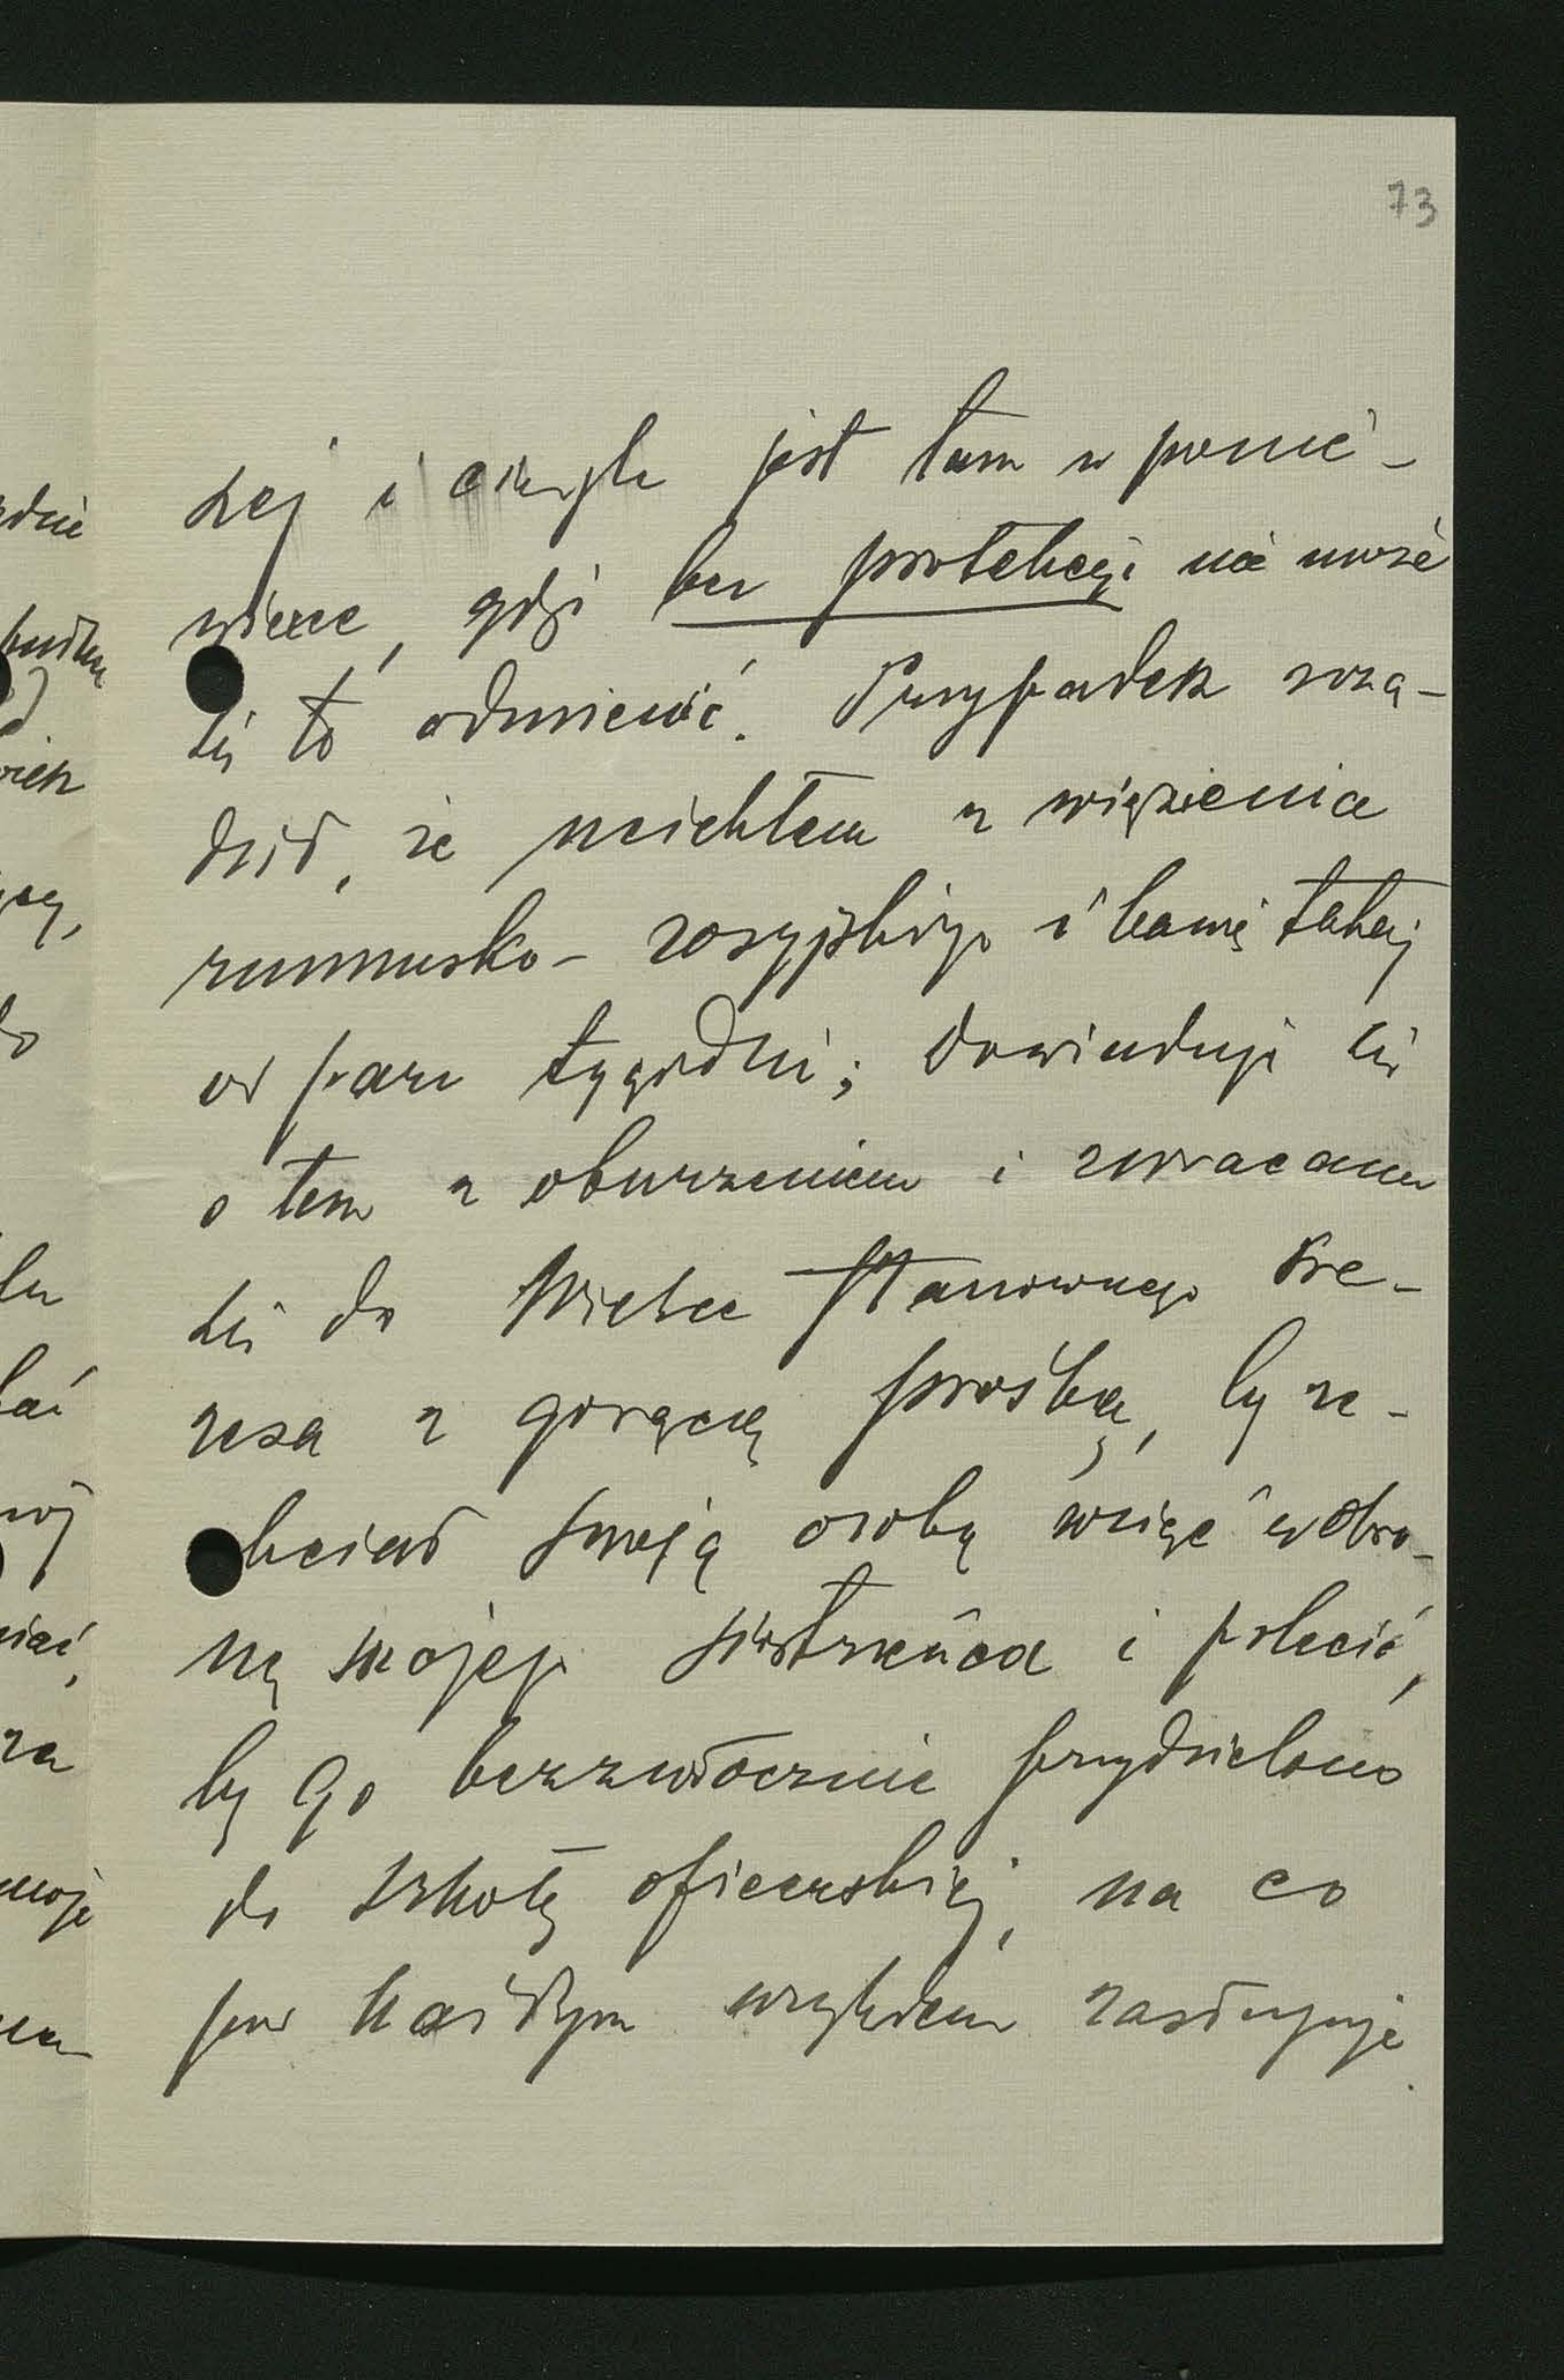 73
szej i ciągle jest tam w ponie-
wierce, gdyż bez protekcji nie może
się to odmienić. Przypadek rzą-
dził, że uciekłem z więzienia
rumuńsko-rosyjskiego i bawię tutaj
od paru tygodni; dowiaduję się
o tem z oburzeniem i zwracam
się do Wielce Szanownego Pre-
zesa z gorącą prośbą, by ze-
chciał swoją osobą wziąć w obro-
nę mojego siostrzeńca i polecić,
by go bezzwłocznie przydzielono
do szkoły oficerskiej, na co
pod każdym względem zasługuje.